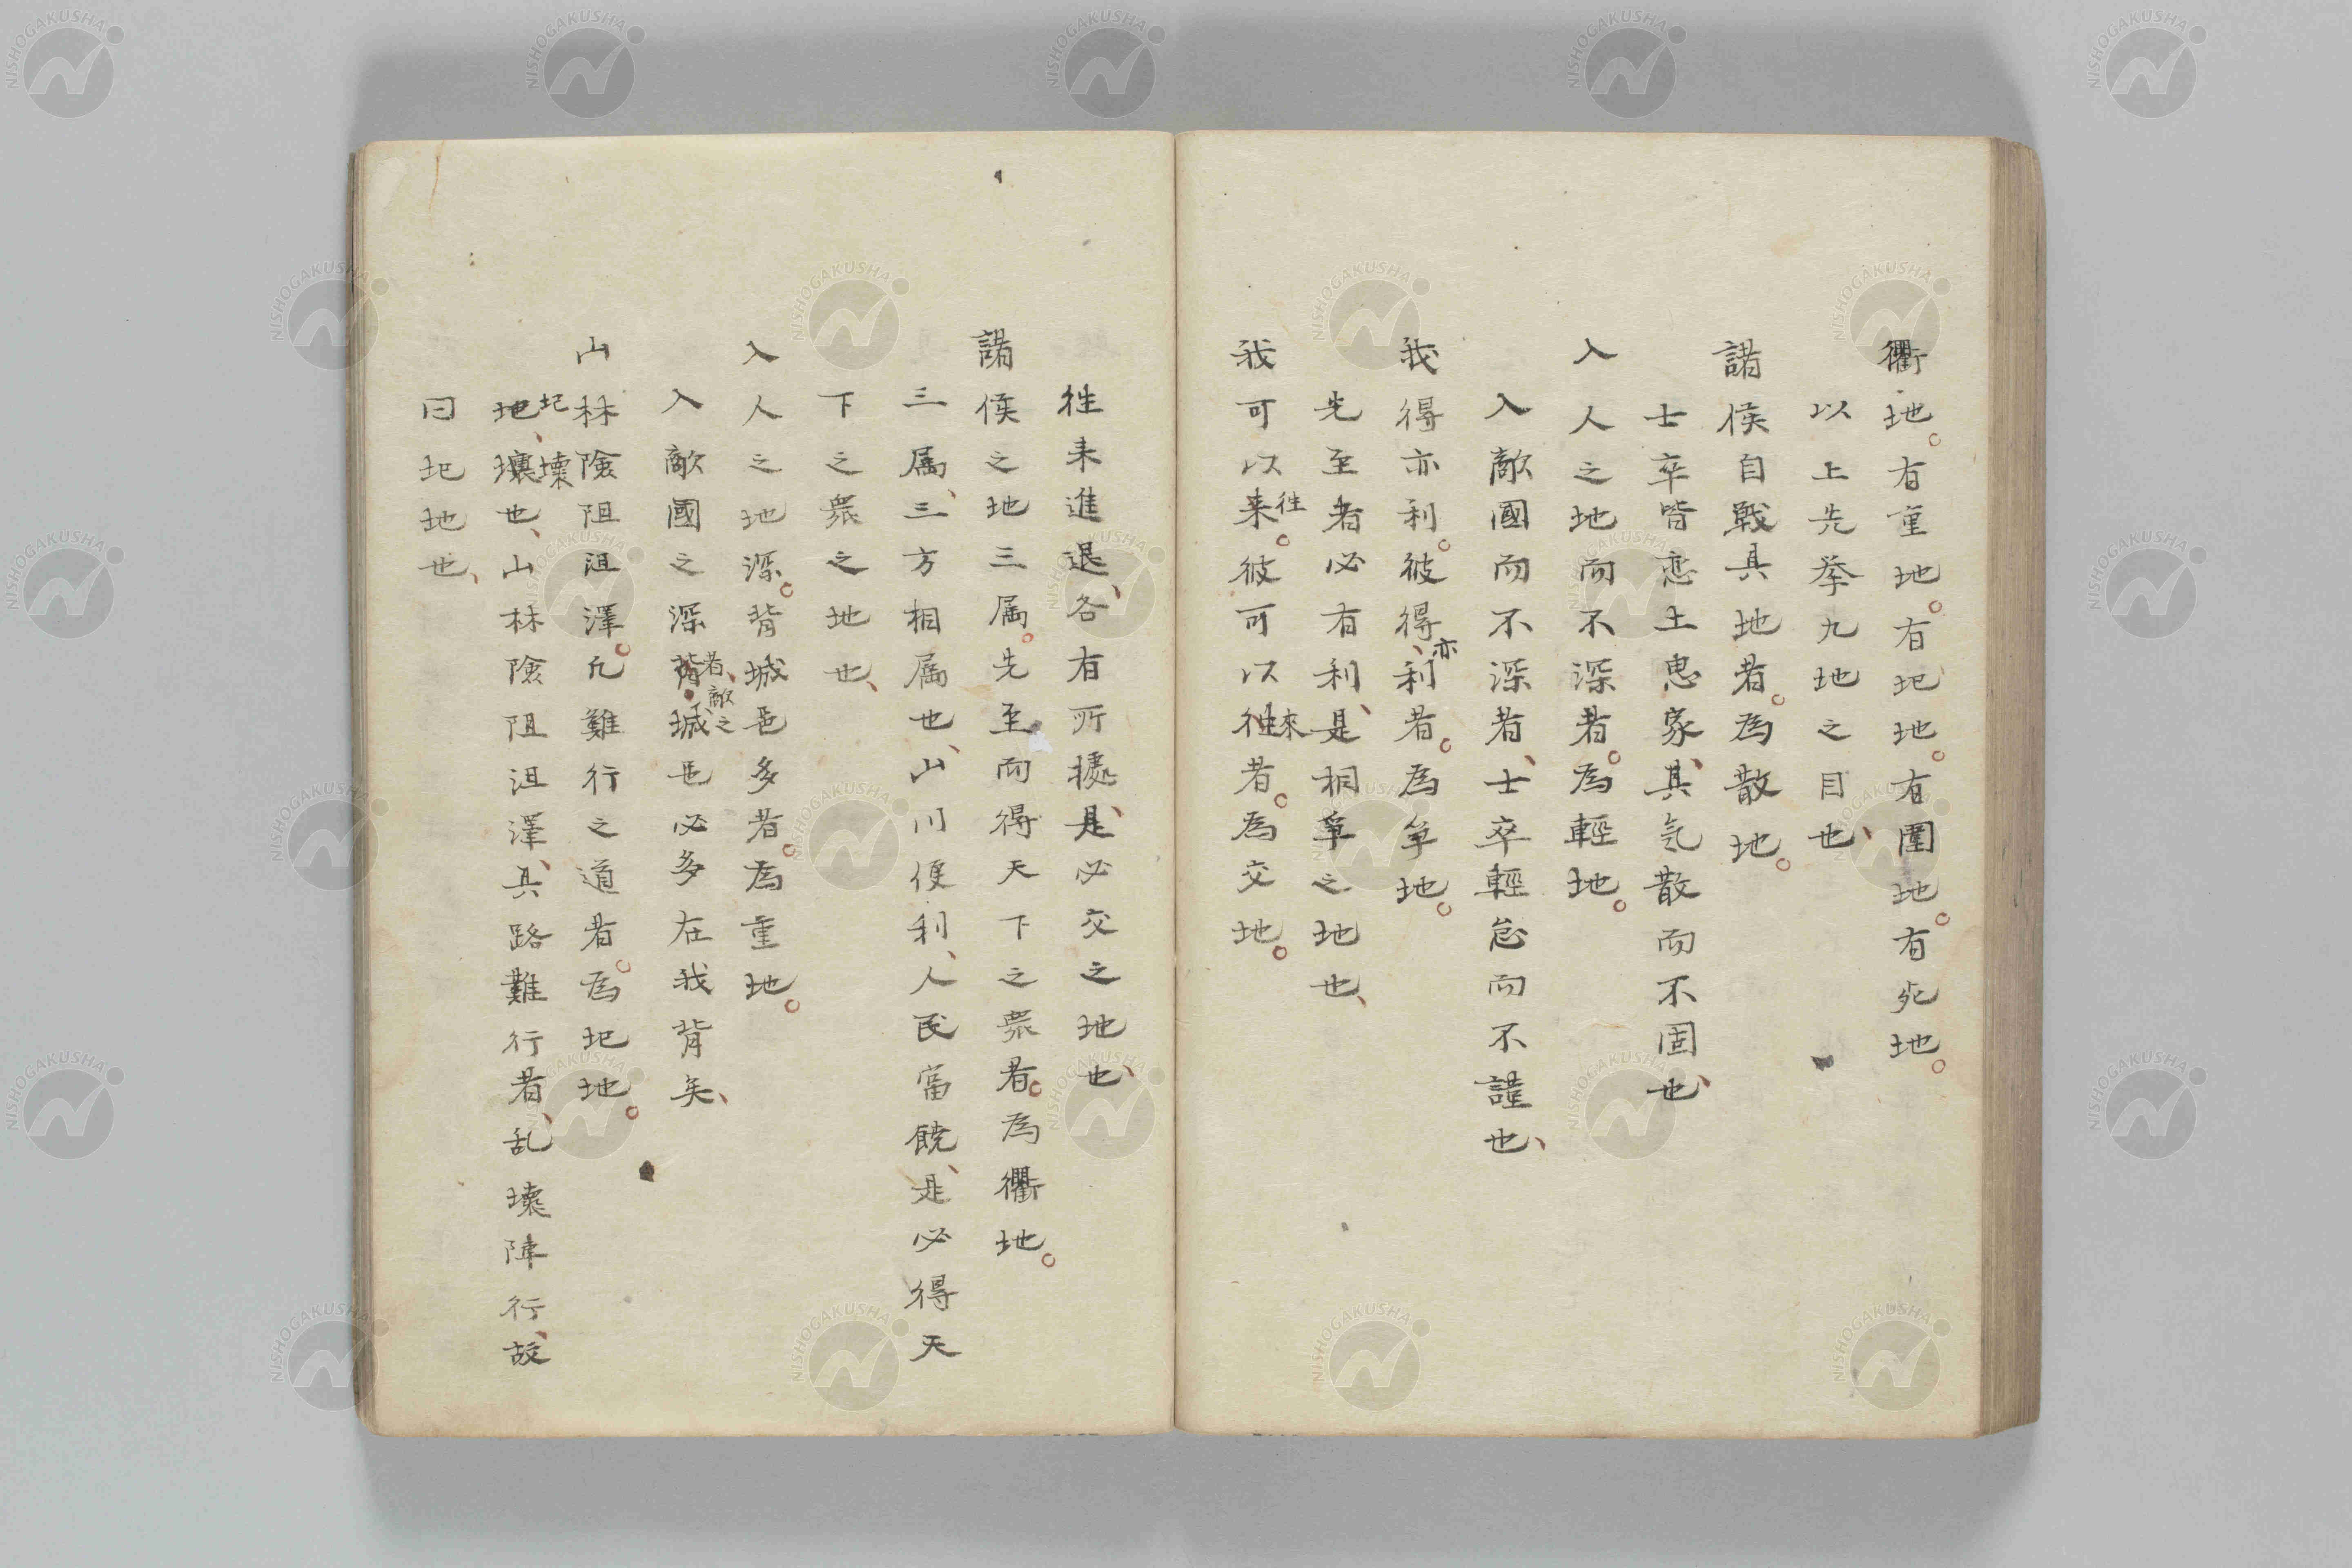 衢地。有重地。有圯地。有圍地。有死地。
以上先挙九地之目也、
諸侯自戰其地者。為散地。
士卒皆恋土思家、其気散而不固也、
入人之地而不深者。為輕地。
入敵國而不深者、士卒輕怠而不謹也、
我得亦利。彼得亦利者。為争地。
先至者必有利、是相争之地也、
我可以往。彼可以來者。為交地。
往来進退、各有所據、是必交之地也、
諸侯之地三属。先至而得天下之衆者。為衢地。
三属、三方相属也、山川便利、人民富饒、是必得天
下之衆之地也、
入人之地深。背城邑多者。為重地。
入敵國之深者、敵之城邑必多在我背矣、
山林險阻沮澤。凡難行之道者。為圯地。
圯、壊也、山林險阻沮澤、其路難行者、乱壊陣行、故
曰圯地也、
NISHOGAKUSHA